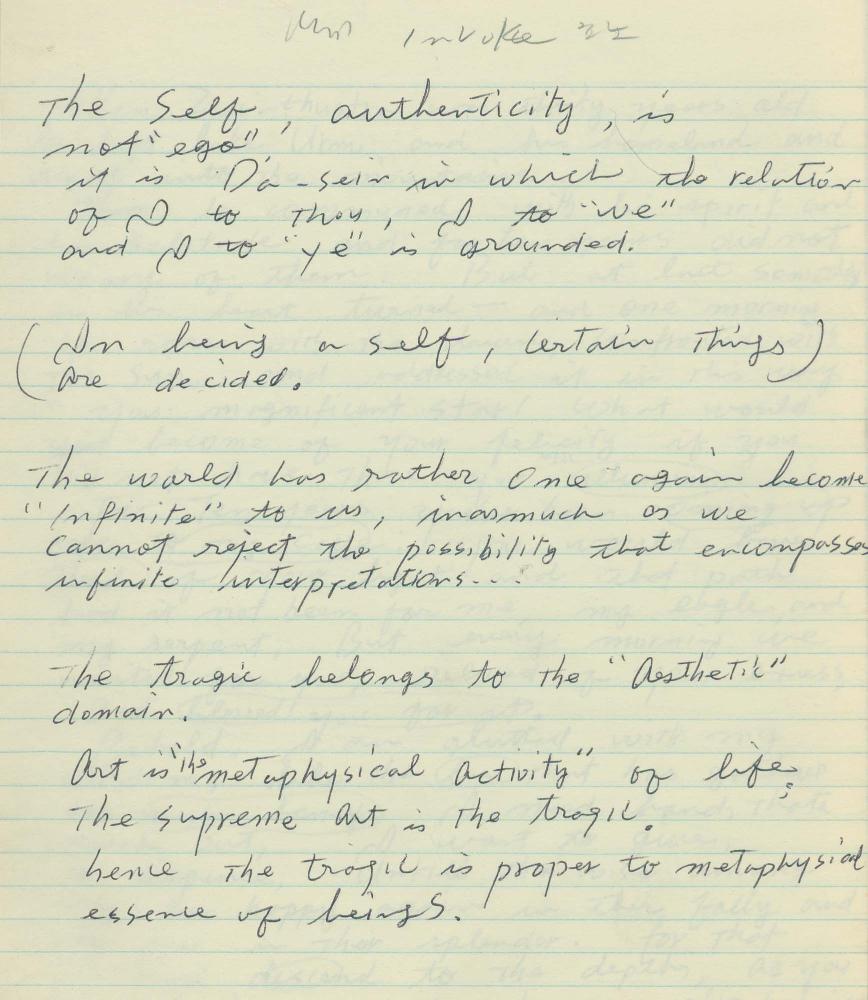 Invoke
The Self, authenticity, is
not "ego",
it is Da-sein in which the relation
of I to Thou, I to "we"
and I to "ye" is grounded.
(In being a self, certain things)
are decided.
The world has rather once again become
"Infinite" to us, inasmuch as we
cannot reject the possibility that encompasses
infinite interpretations...
The tragic belongs to the "Aesthetic"
domain.
Art is "the metaphysical activity" of life;
The supreme art is the tragic.
hence the tragic is proper to metaphysical
essence of beings.